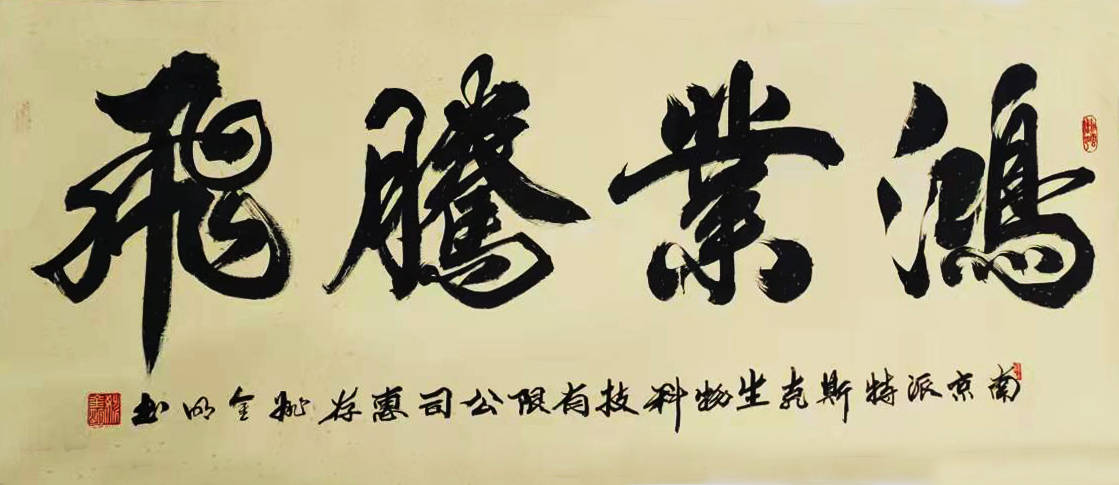 鴻業騰飛
南京派特斯克生物科技有限公司惠存姚金明书